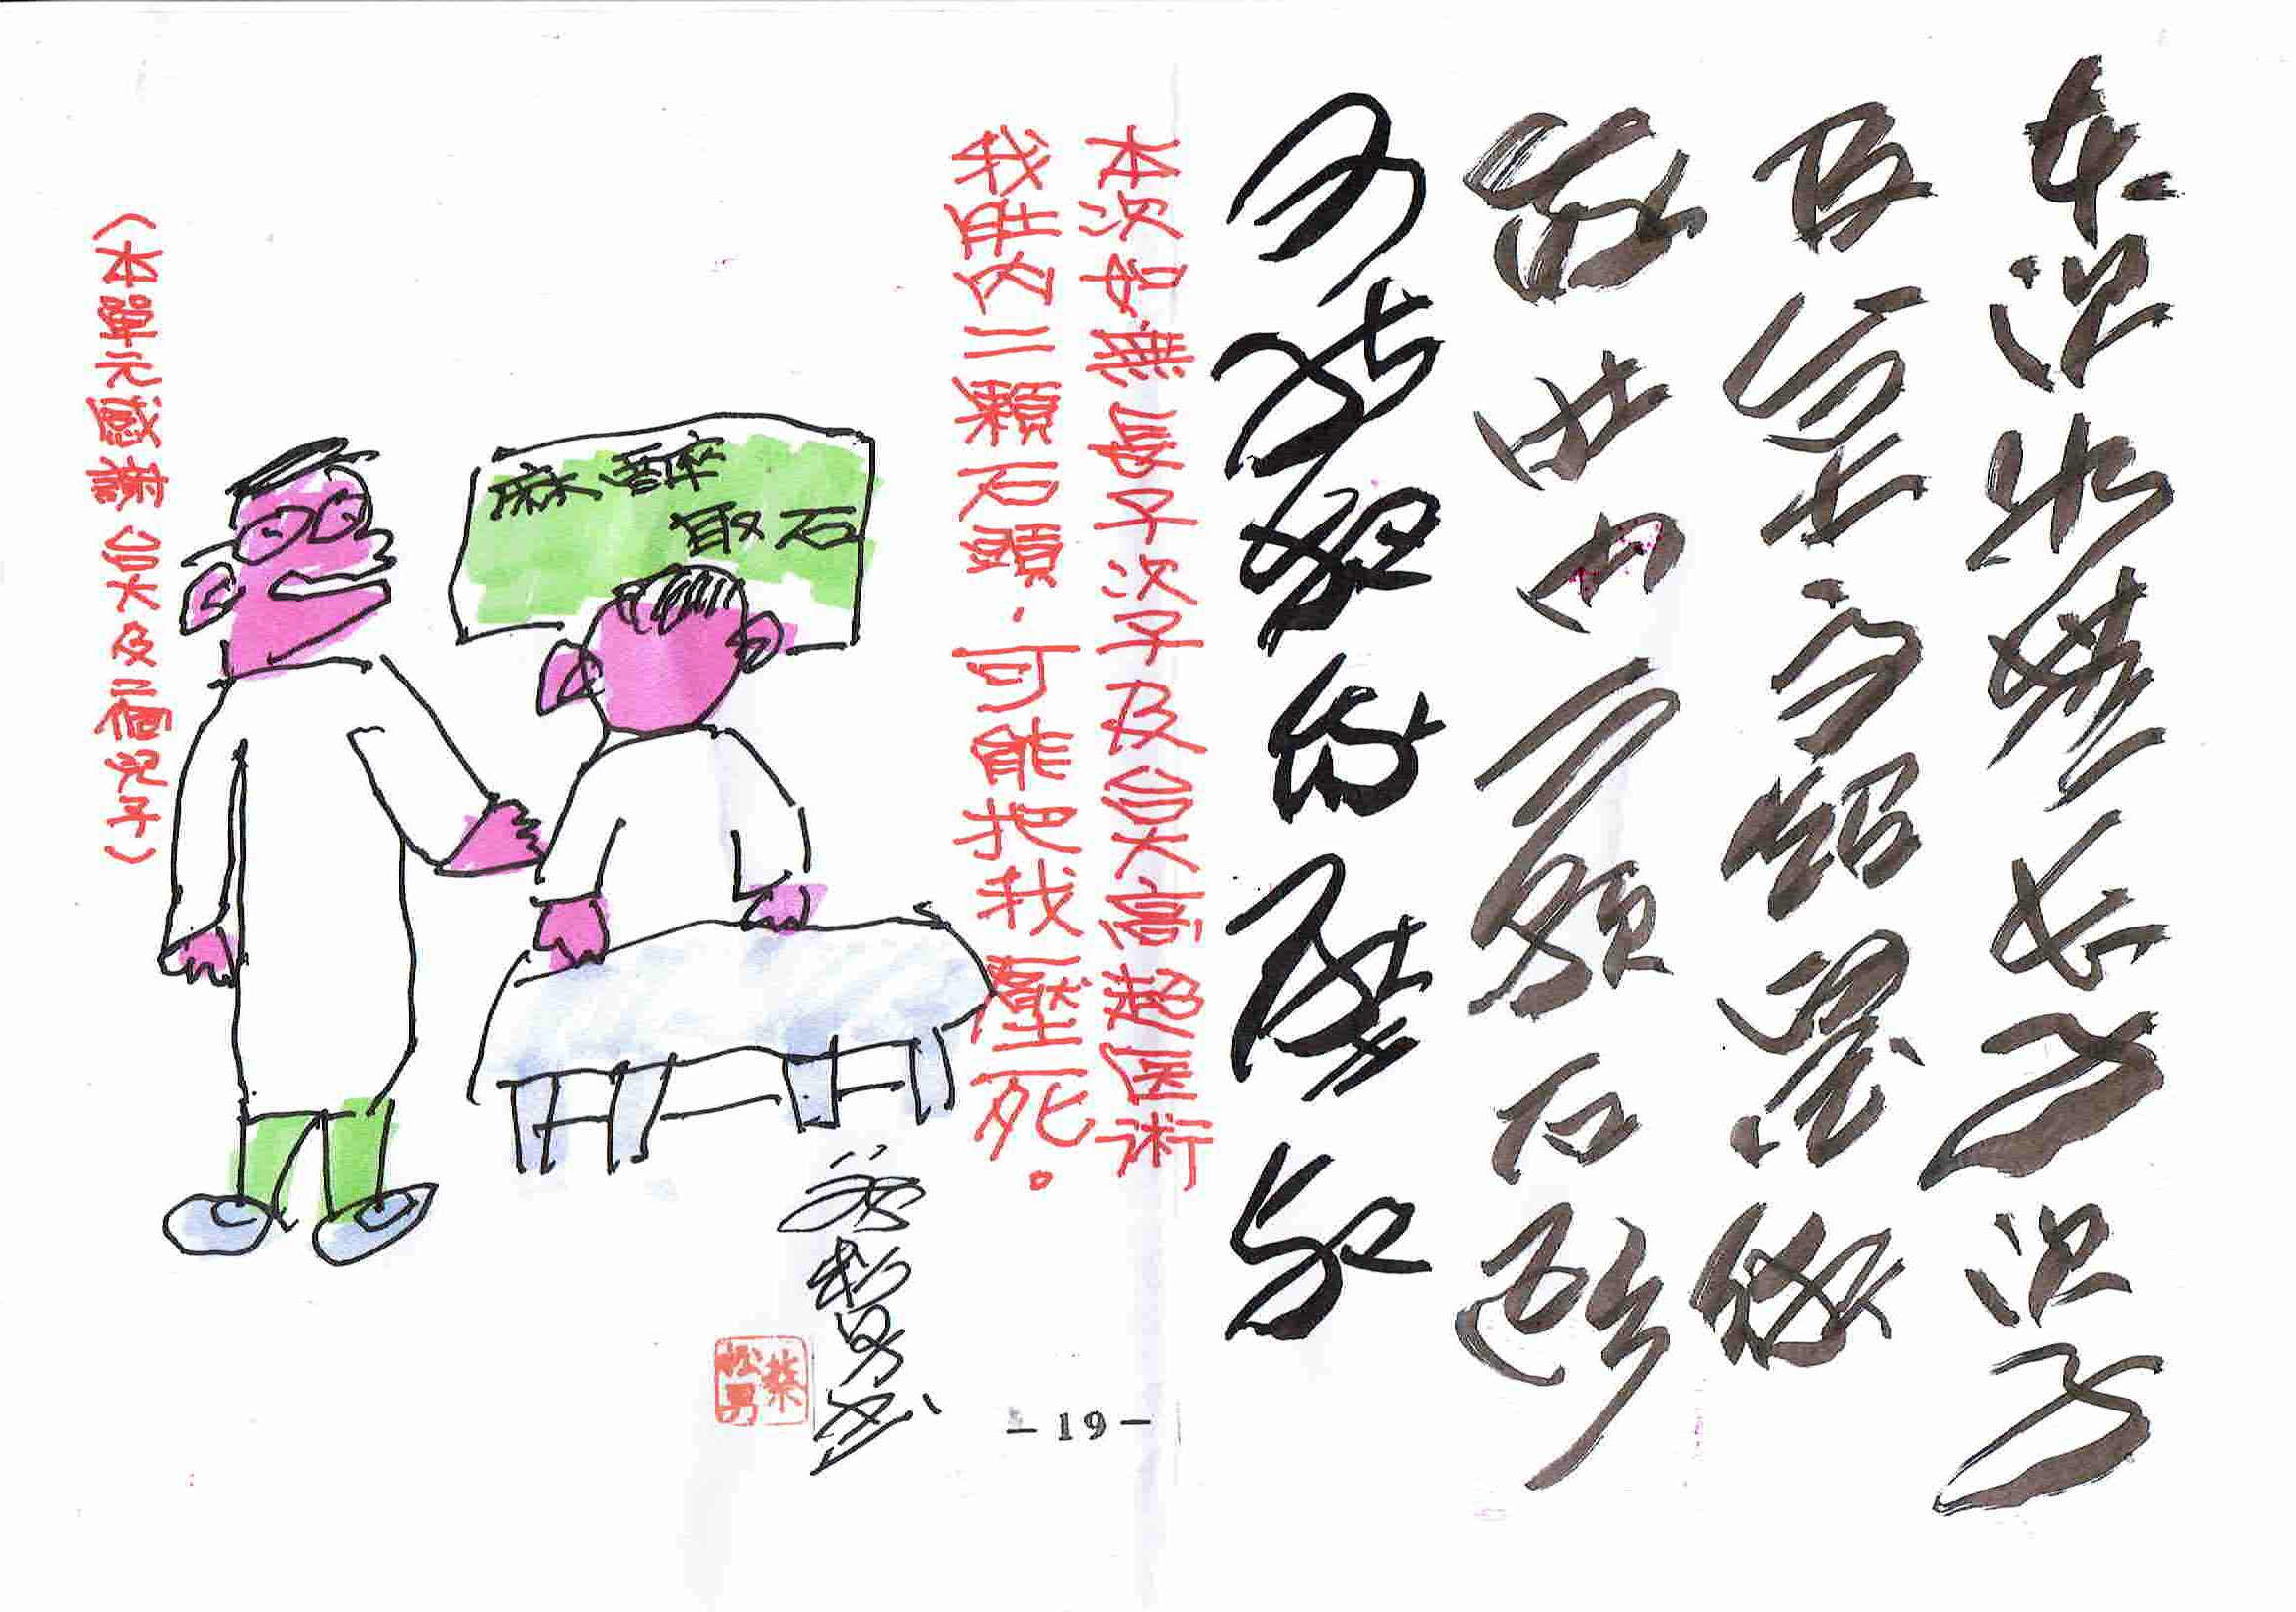 本次如無長子次子
及台大高超醫術
我胆內二顆石頭
可能把我壓死
本次如無長子次子及台大高超医術
我胆內二顆石頭,可能把我壓死。
麻醉
取石
葉松男書
葉松男
(本單元感謝台大及二個兒子)
-19-